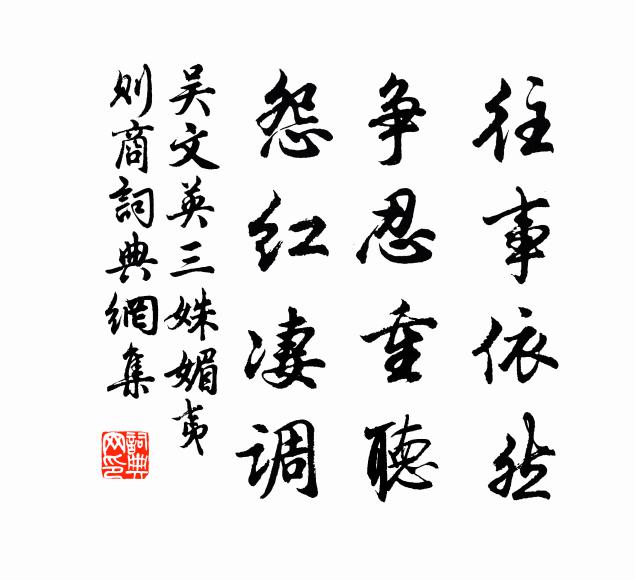 往事依然
争忍重聽
怨红凄调
吴文英三姝媚夷
则商詞典網集
詞典网印